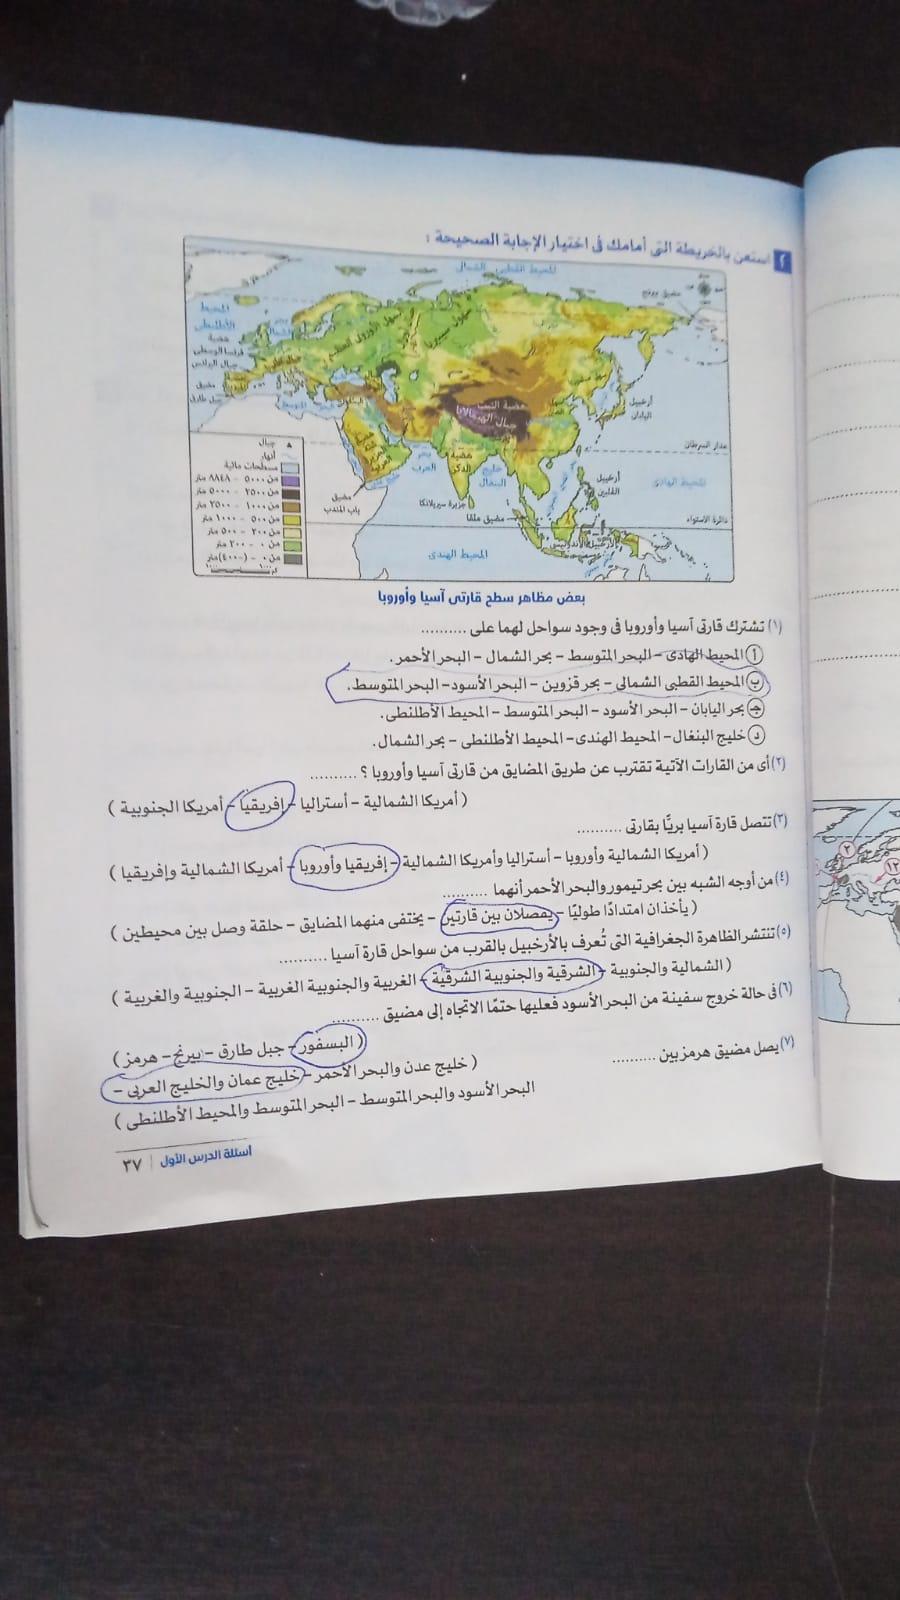 ٢ استعن بالخريطة التى أمامك فى اختيار الإجابة الصحيحة :
المحيط القطبى الشمالى
المحيط
الأطلنطى
هضبة
فرنسا الوسطى
جبال البرانس
مضيق
جبل طارق
سهول سيبيريا
هضبة التبت
جبال الهيمالايا
أرخبيل
اليابان
مدار السرطان
المحيط الهادى
هضبة
الدكن
بحر
العرب
خليج
البنغال
أرخبيل
الفلبين
مضيق
باب المندب
جزيرة سيريلانكا
مضيق ملقا
دائرة الاستواء
المحيط الهندى
جبال
أنهار
مسطحات مائية
من ٥٠٠٠ - ٨٨٤٨ متر
من ٢٥٠٠ - ٥٠٠٠ متر
من ١٠٠٠ - ٢٥٠٠ متر
من ٥٠٠ - ١٠٠٠ متر
من ٢٠٠ - ٥٠٠ متر
من ٠ - ٢٠٠ متر
بعض مظاهر سطح قارتى آسيا وأوروبا
(١) تشترك قارتى آسيا وأوروبا فى وجود سواحل لهما على ..........
أ المحيط الهادى - البحر المتوسط - بحر الشمال - البحر الأحمر.
ب المحيط القطبى الشمالى - بحر قزوين - البحر الأسود - البحر المتوسط.
ج بحر اليابان - البحر الأسود - البحر المتوسط - المحيط الأطلنطى.
د خليج البنغال - المحيط الهندى - المحيط الأطلنطى - بحر الشمال.
(٢) أى من القارات الآتية تقترب عن طريق المضايق من قارتى آسيا وأوروبا ؟ ..........
( أمريكا الشمالية - أستراليا - إفريقيا - أمريكا الجنوبية )
(٣) تتصل قارة آسيا بريًّا بقارتى ..........
( أمريكا الشمالية وأوروبا - أستراليا وأمريكا الشمالية - إفريقيا وأوروبا - أمريكا الشمالية وإفريقيا )
(٤) من أوجه الشبه بين بحر تيمور والبحر الأحمر أنهما ..........
( يأخذان امتدادًا طوليًا - يفصلان بين قارتين - يختفى منهما المضايق - حلقة وصل بين محيطين )
(٥) تنتشر الظاهرة الجغرافية التى تُعرف بالأرخبيل بالقرب من سواحل قارة آسيا ..........
( الشمالية والجنوبية - الشرقية والجنوبية الشرقية - الغربية والجنوبية الغربية - الجنوبية والغربية )
(٦) فى حالة خروج سفينة من البحر الأسود فعليها حتمًا الاتجاه إلى مضيق ..........
( البسفور - جبل طارق - بيرنج - هرمز )
(٧) يصل مضيق هرمز بين ..........
( خليج عدن والبحر الأحمر - خليج عمان والخليج العربى -
البحر الأسود والبحر المتوسط - البحر المتوسط والمحيط الأطلنطى )
أسئلة الدرس الأول | ٣٧